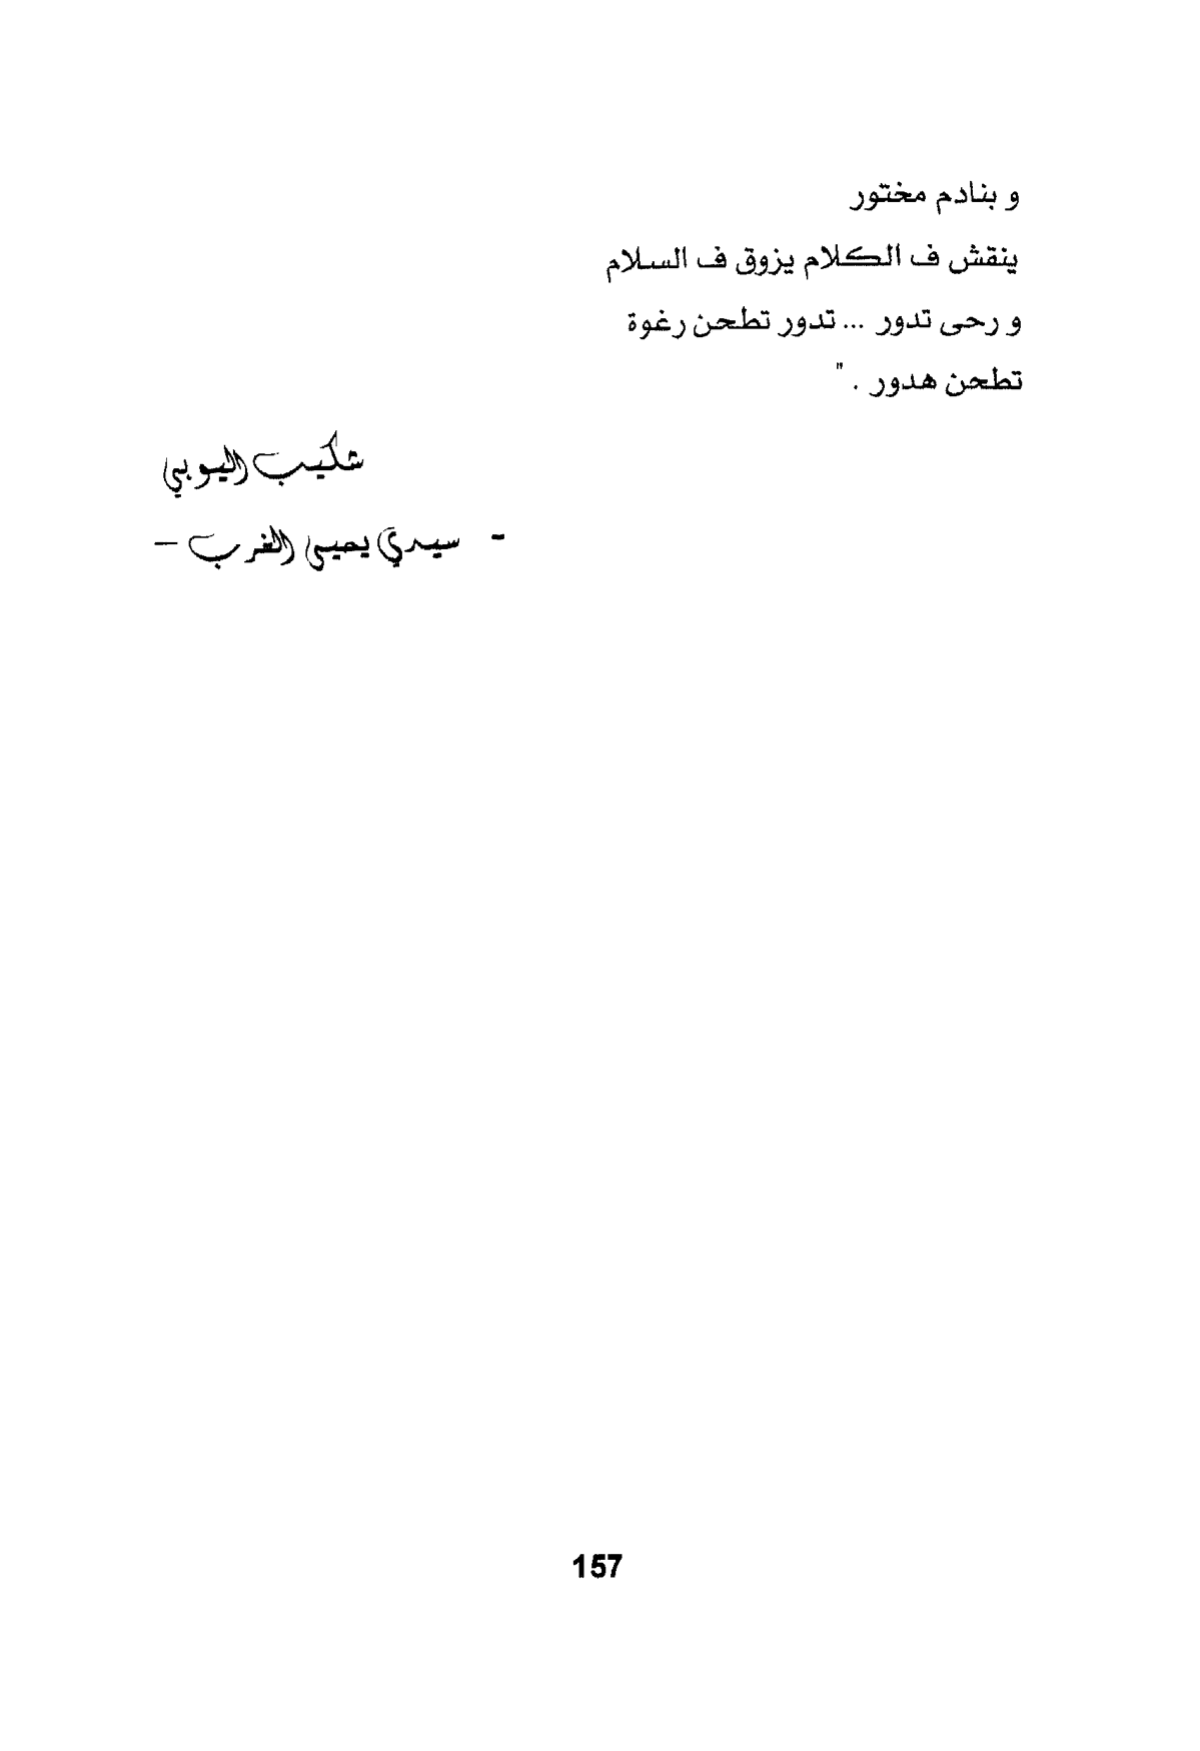 و بنادم مختور
ينقش ف الكلام يزوق ف السلام
و رحى تدور ... تدور تطحن رغوة
تطحن هدور . "
شكيب اليوبي
- سيدي يحيى الغرب –
157